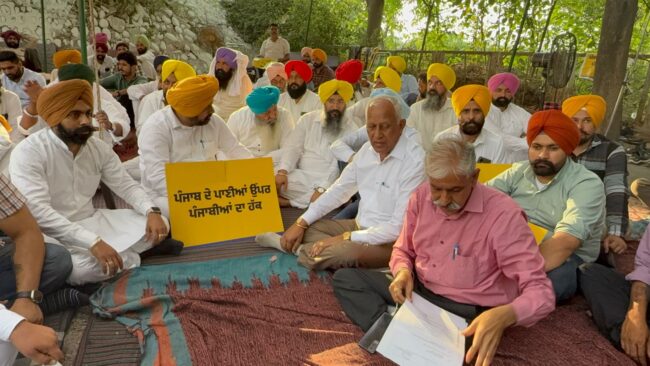 ਪੰਜਾਬ ਦੇ ਪਾਣੀਆਂ ਉੱਪਰ
ਪੰਜਾਬੀਆਂ ਦਾ ਹੱਕ